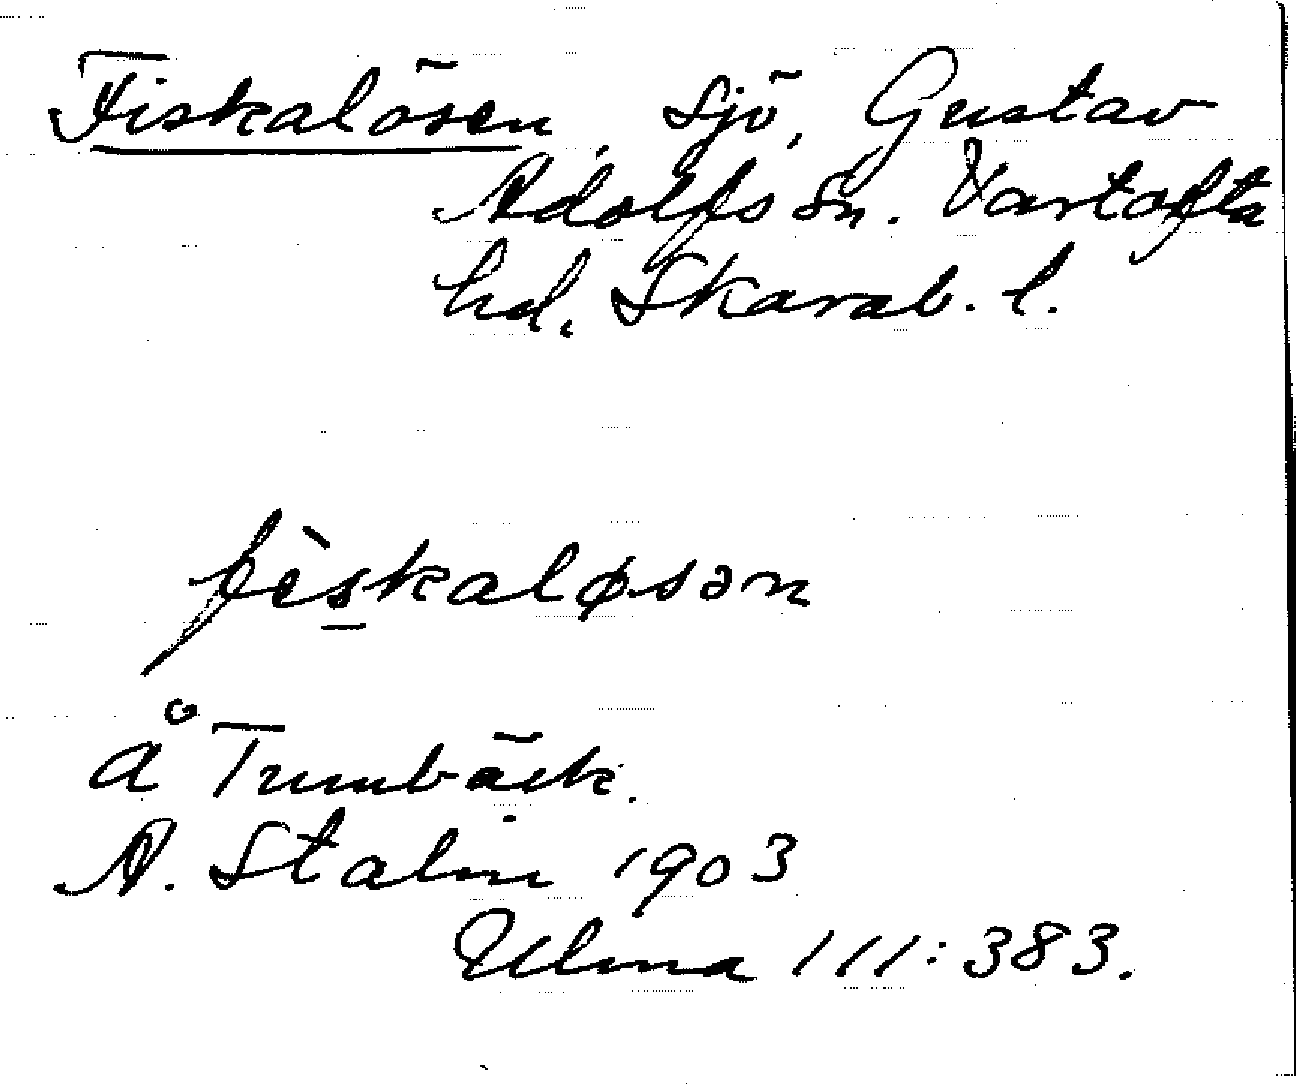 Fiskalösen, sjö, Gustav
Adolfs sn. Vartofta
hd, Skarab. l.
fìskaløsən
å Trumbäck.
A. Stalin 1903
Ulma 111:383.